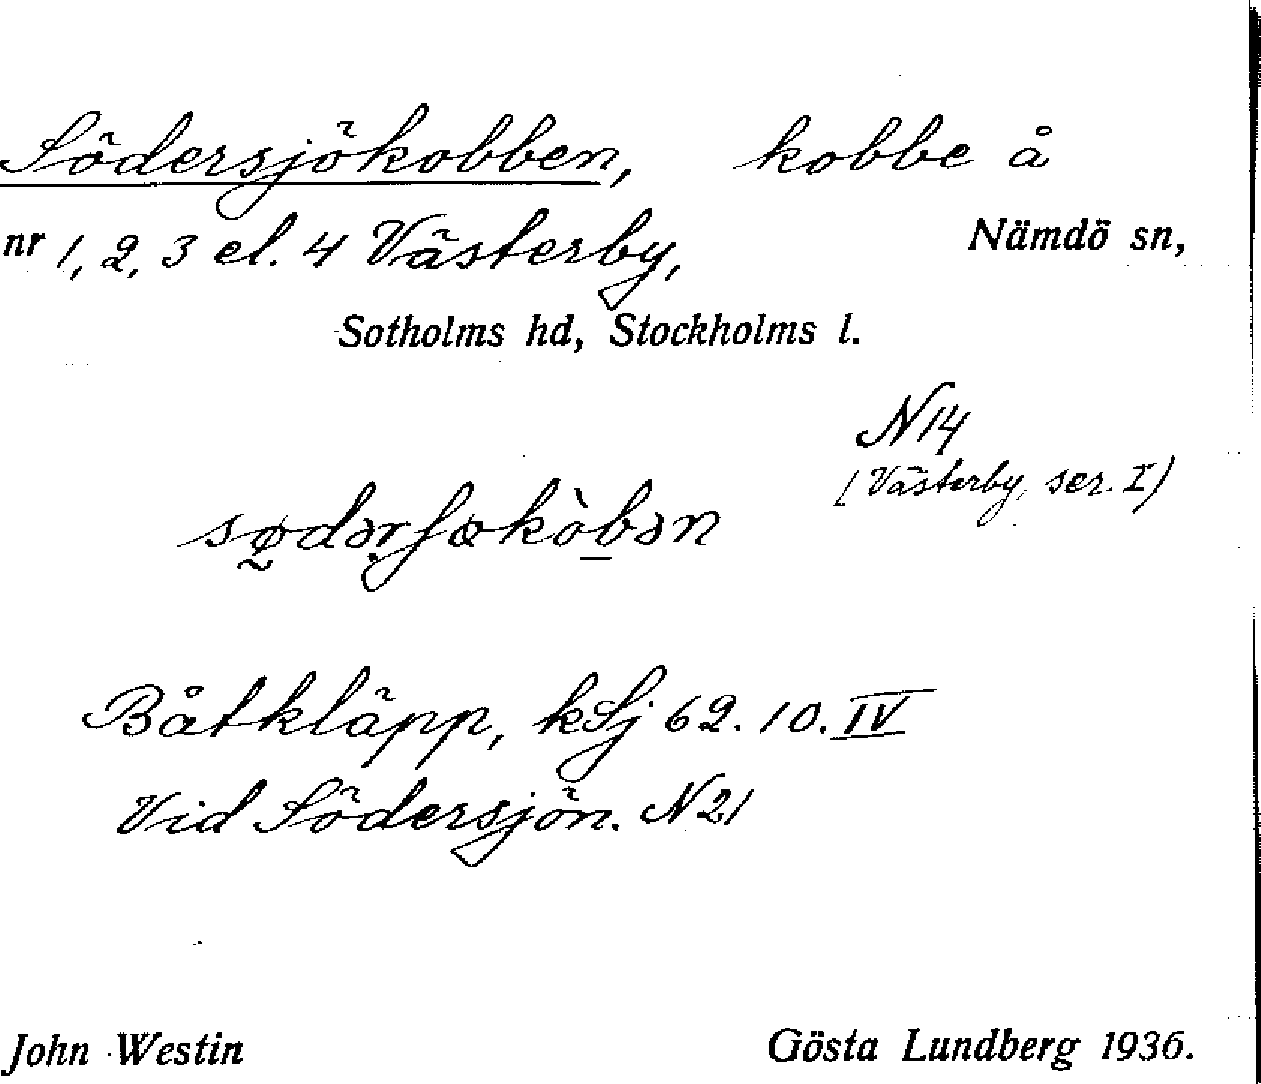 Södersjökobben, kobbe å
nr 1, 2, 3 el. 4 Västerby, Nämdö sn,
Sotholms hd, Stockholms l.
N 14
(Västerby, ser. I)
sø̰dəṛʃœkòb̲ən
Båtkläpp, kSj 62. 10. IV
Vid Södersjön. N 21
John Westin Gösta Lundberg 1936.